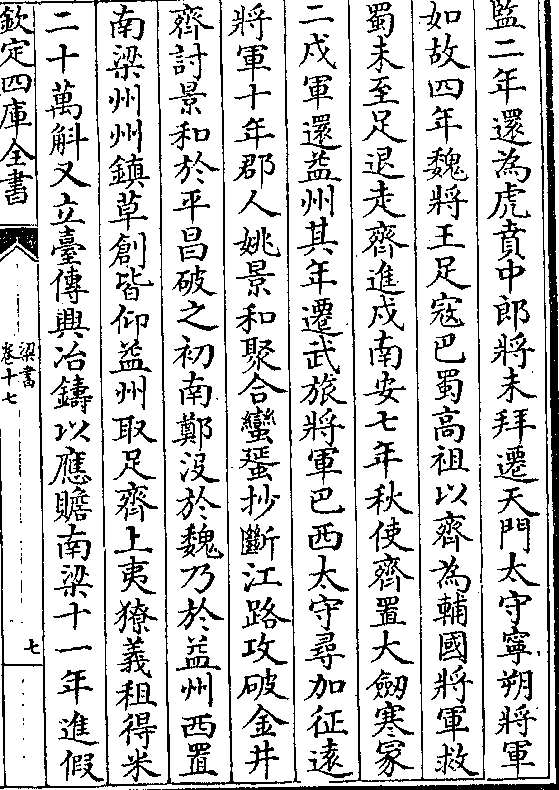 監二年還為虎賁中郎將未拜遷天門太守寧朔將軍
如故四年魏將王足寇巴蜀高祖以齊為輔國將軍救
蜀未至足退走齊進戍南安七年秋使齊置大劒寒冢
二戍軍還益州其年遷武旅將軍巴西太守尋加征遠
將軍十年郡人姚景和聚合蠻蜑抄斷江路攻破金井
齊討景和於平昌破之初南鄭沒於魏乃於益州西置
南梁州州鎮草創皆仰益州取足齊上夷獠義租得米
二十萬斛又立臺傳興冶鑄以應贍南梁十一年進假
欽定四庫全書
梁書
卷十七
七